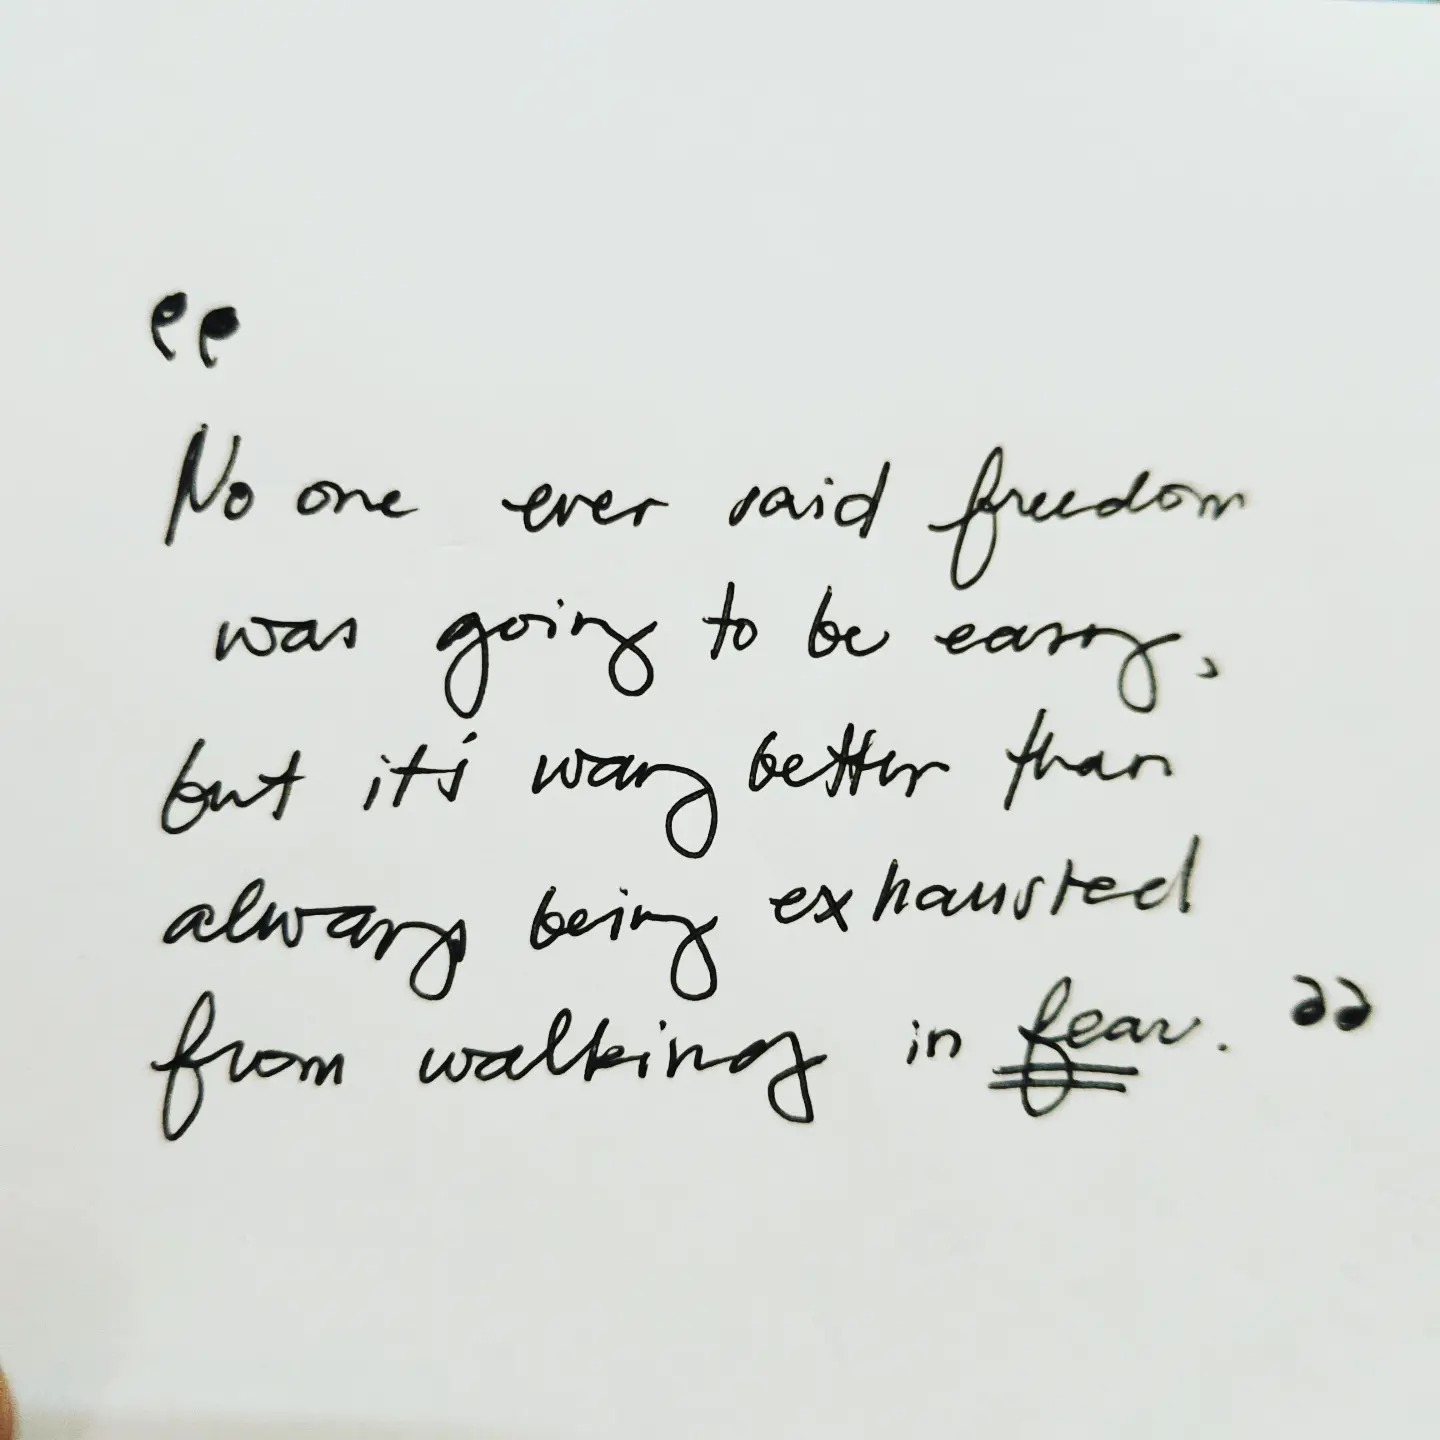 “
No one ever said freedom
was going to be easy,
but it's way better than
always being exhausted
from walking in fear. ”